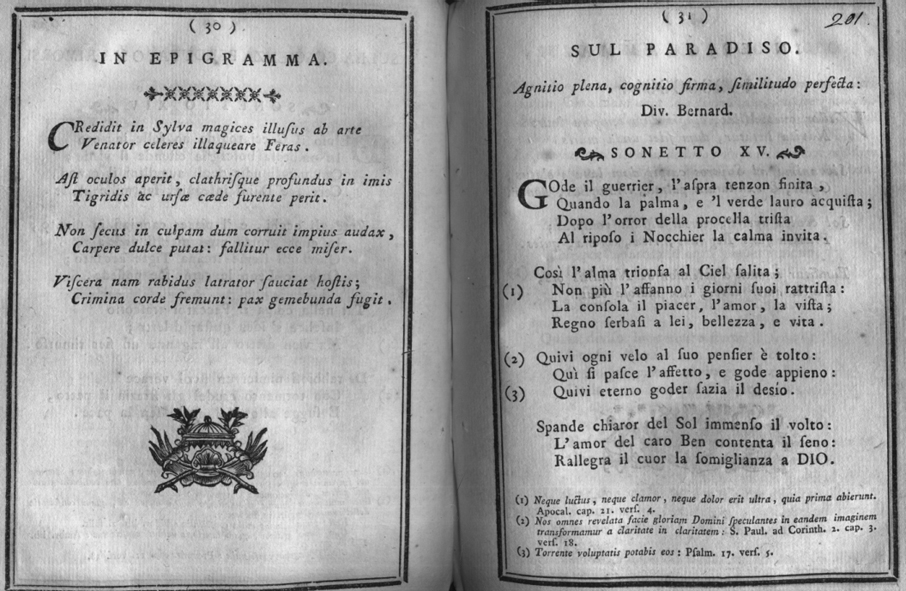 ( 30 )
IN EPIGRAMMA.
CRedidit in Sylva magices illuſus ab arte
Venator celeres illaqueare Feras.
Aſt oculos aperit, clathriſque profundus in imis
Tigridis ac urſæ cæde furente perit.
Non ſecus in culpam dum corruit impius audax,
Carpere dulce putat: fallitur ecce miſer.
Viſcera nam rabidus latrator ſauciat hoſtis;
Crimina corde fremunt: pax gemebunda fugit.
( 31 )
201.
SUL PARADISO.
Agnitio plena, cognitio firma, ſimilitudo perfecta:
Div. Bernard.
SONETTO XV.
GOde il guerrier, l'aſpra tenzon finita,
Quando la palma, e 'l verde lauro acquiſta;
Dopo l'orror della procella triſta
Al ripoſo i Nocchier la calma invita.
Così l'alma trionfa al Ciel ſalita;
(1) Non più l'affanno i giorni ſuoi rattriſta:
La conſola il piacer, l'amor, la viſta;
Regno ſerbaſi a lei, bellezza, e vita.
(2) Quivi ogni velo al ſuo penſier è tolto:
Quì ſi paſce l'affetto, e gode appieno:
(3) Quivi eterno goder ſazia il deſio.
Spande chiaror del Sol immenſo il volto:
L'amor del caro Ben contenta il ſeno:
Rallegra il cuor la ſomiglianza a DIO.
(1) Neque luctus, neque clamor, neque dolor erit ultra, quia prima abierunt.
Apocal. cap. 21. verſ. 4.
(2) Nos omnes revelata facie gloriam Domini ſpeculantes in eandem imaginem
transformamur a claritate in claritatem: S. Paul. ad Corinth. 2. cap. 3.
verſ. 18.
(3) Torrente voluptatis potabis eos: Pſalm. 17. verſ. 5.